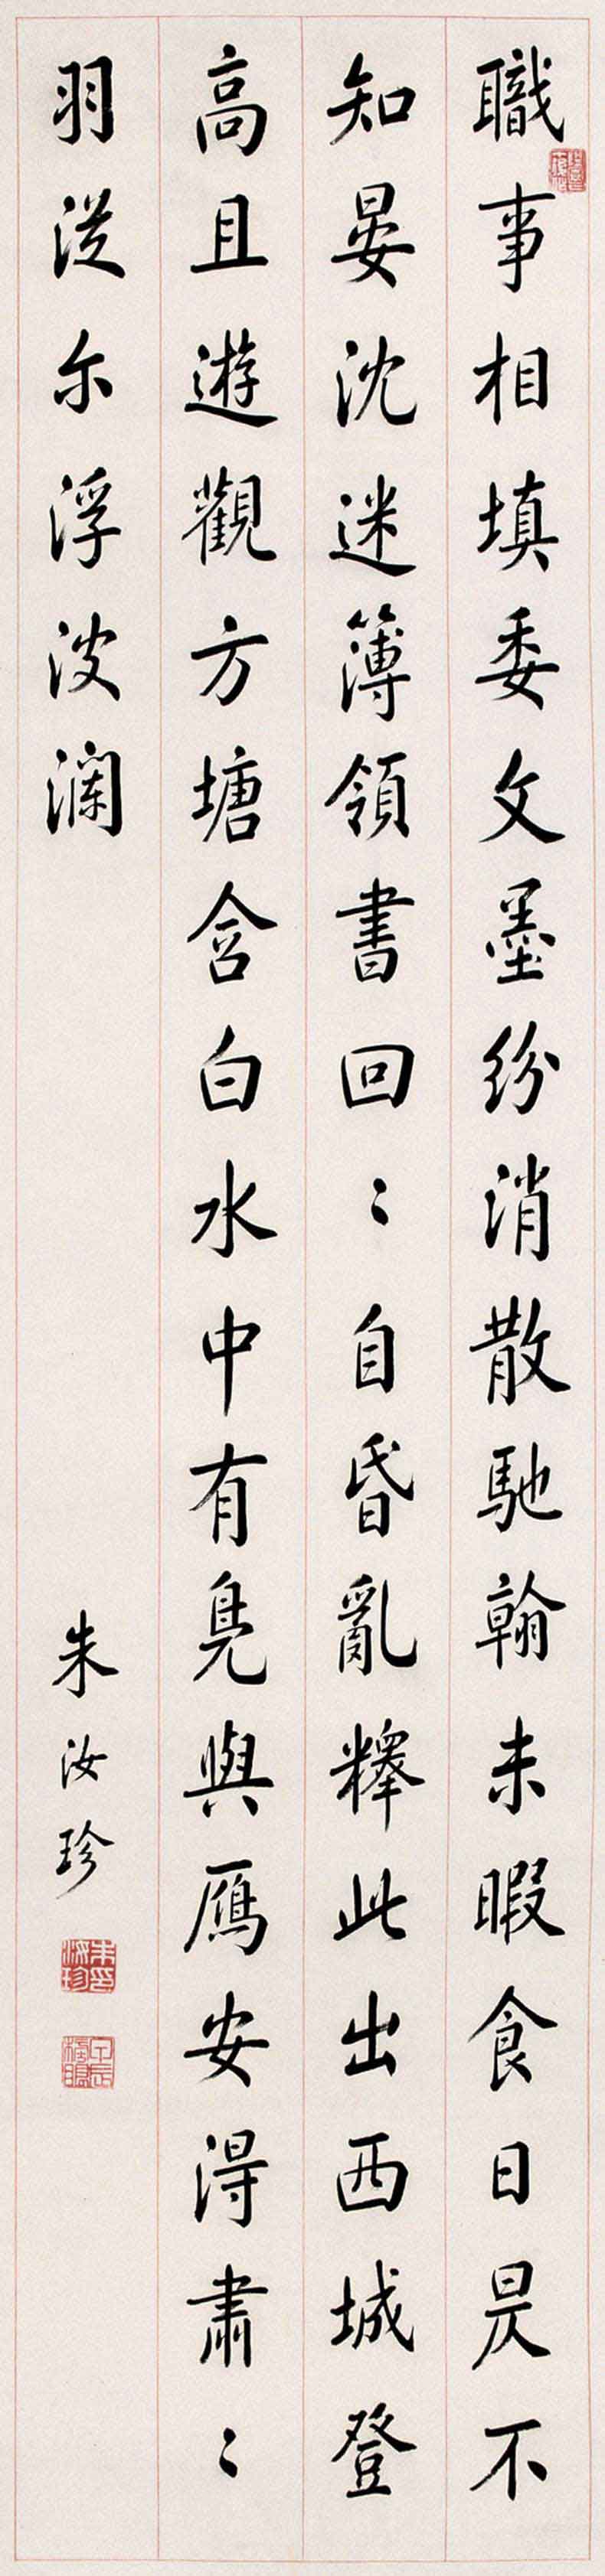 職事相填委文墨紛消散馳翰未暇食日昃不
知晏沈迷簿領書回〻自昏亂釋此出西城登
高且遊觀方塘含白水中有鳧與鴈安得肅〻
羽從尔浮波瀾
朱汝珍
朱汝珍印
甲辰榜眼